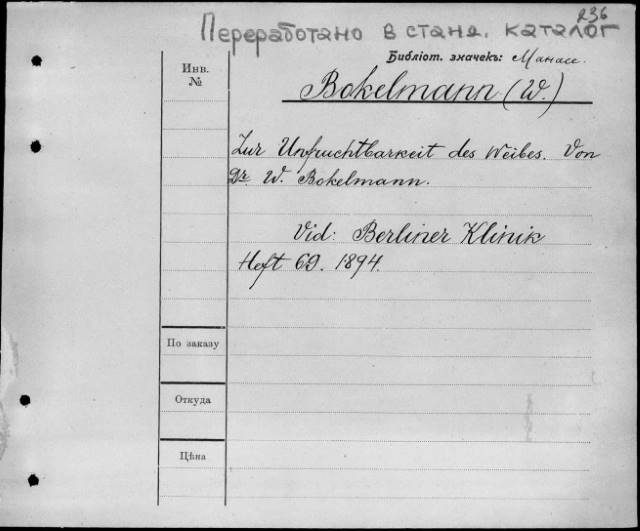 236
Переработано в станд. каталог
Библіот. значекъ: Манас.
Инв.
№
Bokelmann (W.)
Zur Unfruchtbarkeit des Weibes. Von
Dr. W. Bokelmann.
Vid: Berliner Klinik
Heft 69. 1894.
По заказу
Откуда
Цѣна